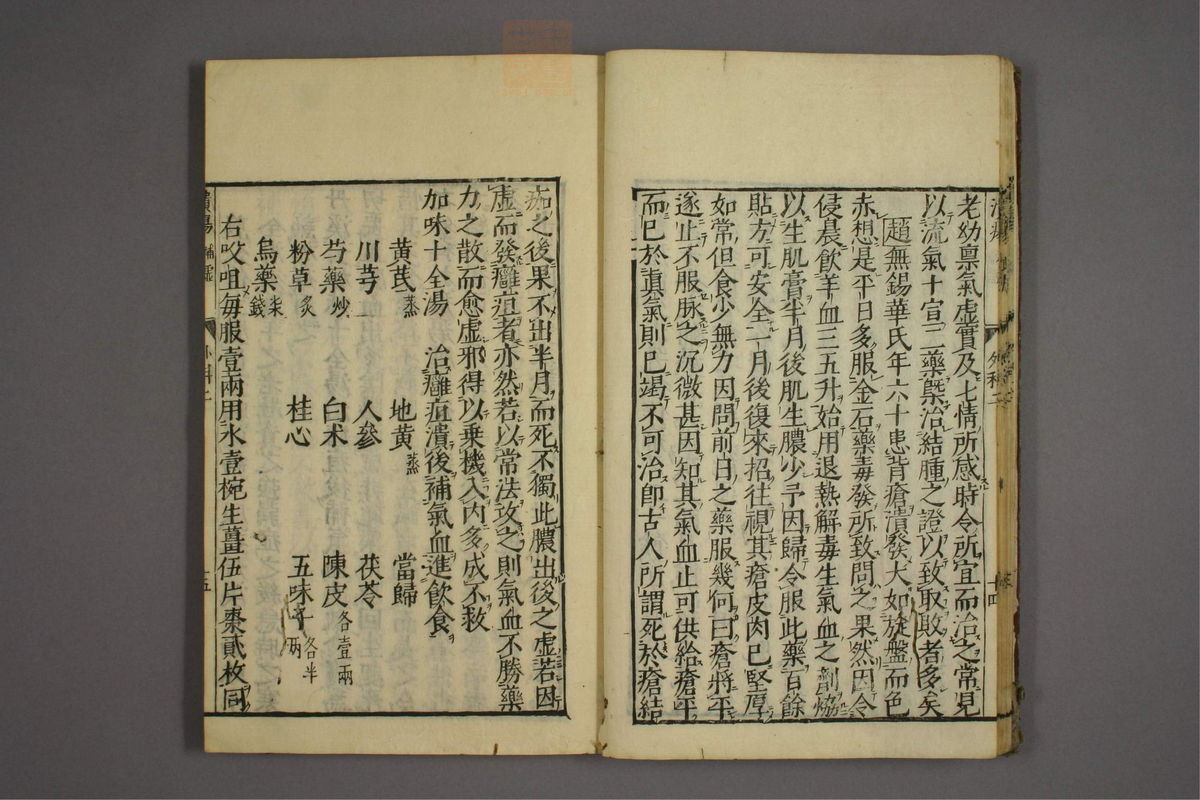 老幼禀氣虛實及七情所感時令所宜而治之常見
以流氣十宣二藥槩治結腫之證以致取敗者多矣
趙無錫華氏年六十患背瘡潰發大如旋盤而色
赤想是平日多服金石藥毒發所致問之果然因令
侵晨飲羊血三五升始用退熱解毒生氣血之劑
以生肌膏半月後肌生膿少予因歸令服此藥百餘
貼方可安全二月後復來招往視其瘡皮肉已堅厚
如常但食少無力因問前日之藥服幾何曰瘡將平
遂止不服脉之沉微甚因知其氣血止可供給瘡平
而已於真氣則已竭不可治即古人所謂死於瘡結
外科二
痂之後果不出半月而死不獨此膿出後之虛若因
虛而發癰疽者亦然若以常法攻之則氣血不勝藥
力之散而愈虛邪得以乗機入内多成不救
加味十全湯 治癰疽潰後補氣血進飲食
黄茋蒸 地黄蒸 當歸
川芎 人參 茯苓
芍藥炒 白术 陳皮各壹兩
粉草炙 桂心 五味子各半兩
烏藥柒錢
右㕮咀每服壹兩用水壹椀生薑伍片棗貳枚同
潰瘍 補虛